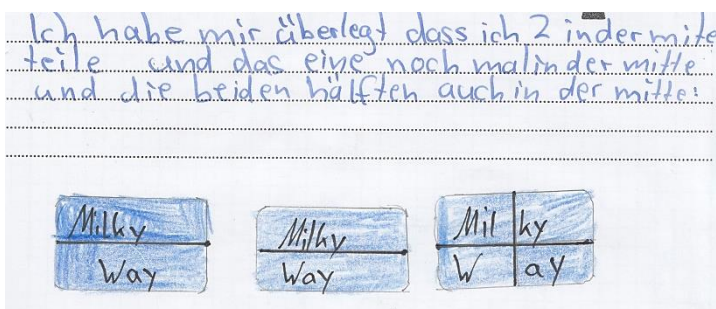 Ich habe mir überlegt dass ich 2 in der mite
teile und das eine noch mal in der mitte
und die beiden hälften auch in der mitte:
Milky Milky Mil ky
Way Way W ay